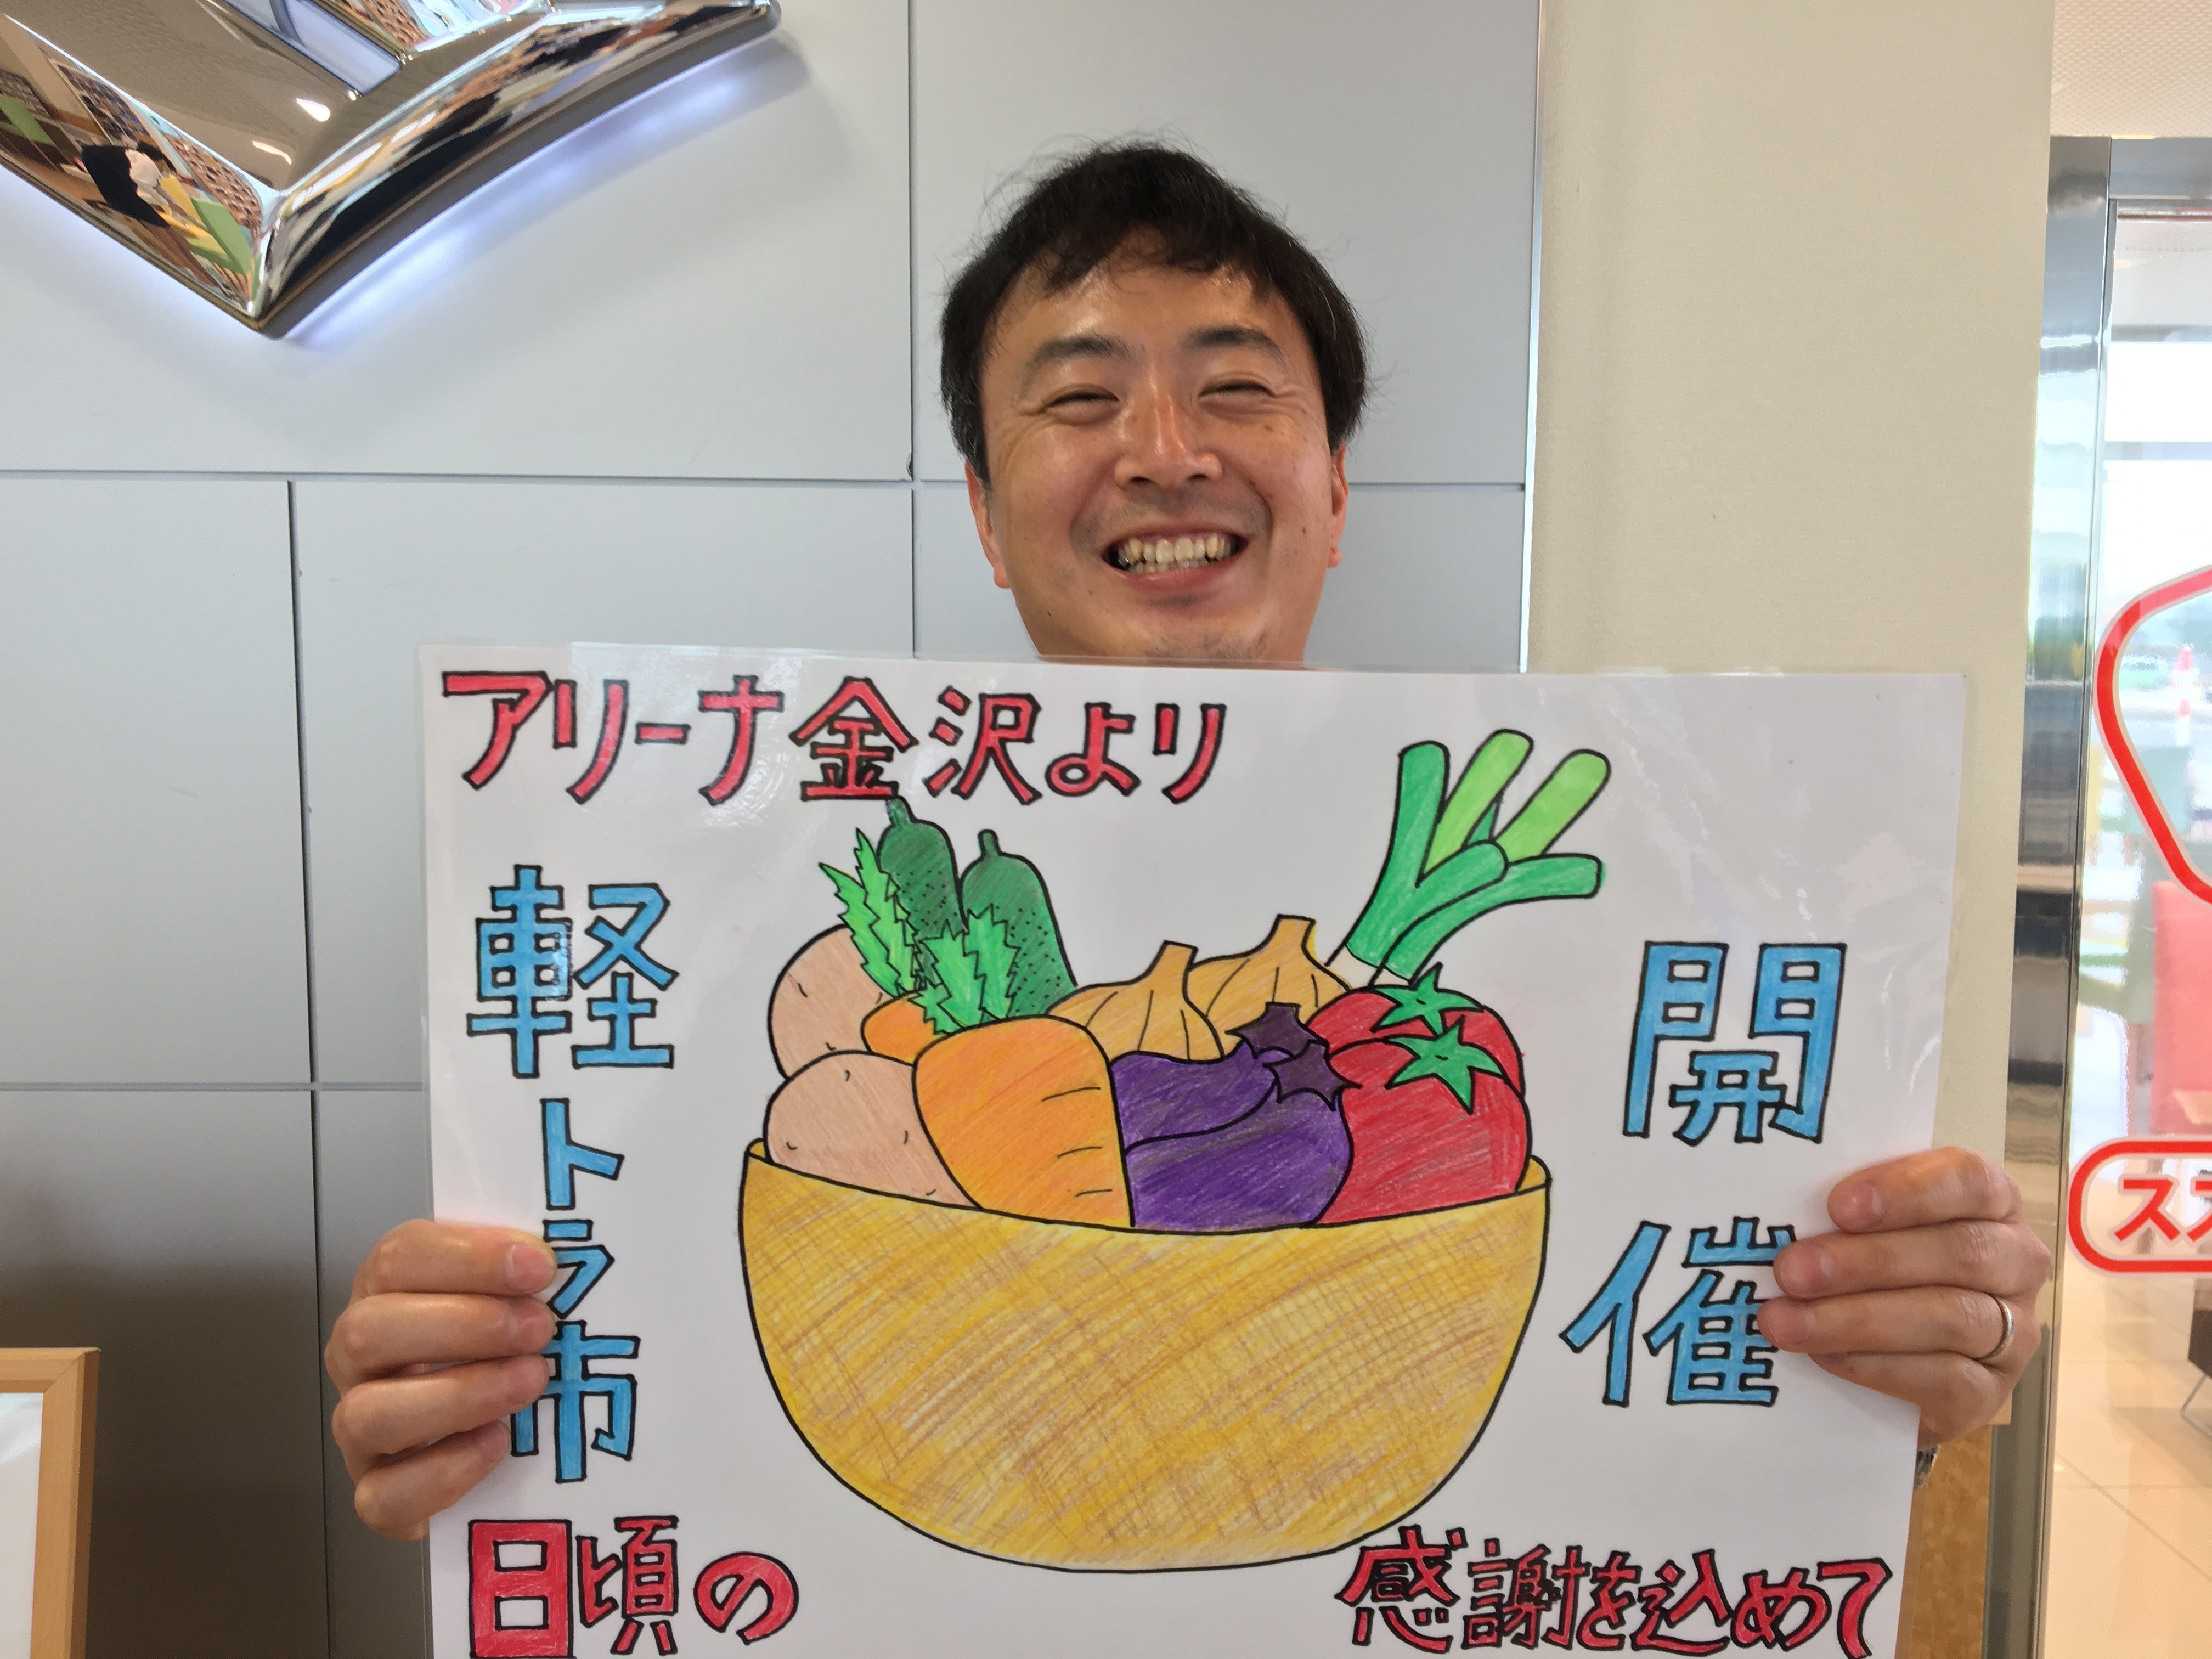 アリーナ金沢より
軽トラ市
開催
日頃の
感謝を込めて